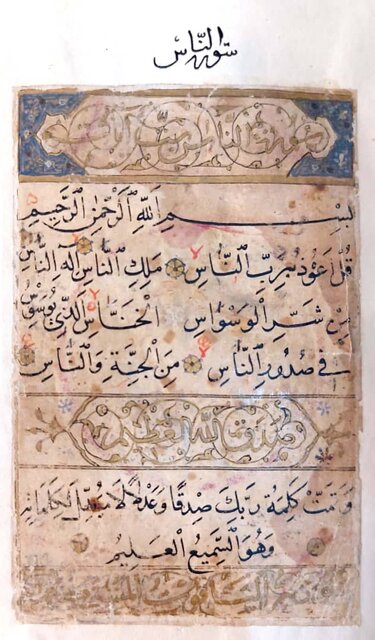 سورة النَّاس
سورة الناس ايات
بِسْمِ اللهِ الرَّحْمٰنِ الرَّحِيمِ
قُلْ اَعُوذُ بِرَبِّ النَّاسِ مَلِكِ النَّاسِ اِلٰهِ النَّاسِ
مِنْ شَرِّ الْوَسْوَاسِ الْخَنَّاسِ الَّذِي يُوَسْوِسُ
فِي صُدُورِ النَّاسِ مِنَ الْجِنَّةِ وَالنَّاسِ
صدق الله العظيم
وَتَمَّتْ كَلِمَةُ رَبِّكَ صِدْقًا وَعَدْلًا لَا مُبَدِّلَ لِكَلِمَاتِهِ
وَهُوَ السَّمِيعُ الْعَلِيمُ